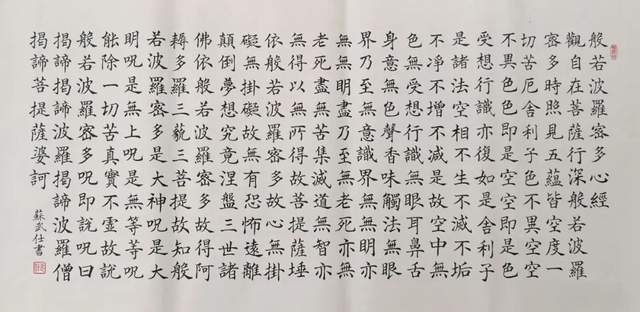 般若波羅密多心經
觀自在菩薩行深般若波羅
密多時照見五蘊皆空度一
切苦厄舍利子色不異空空
不異色色即是空空即是色
受想行識亦復如是舍利子
是諸法空相不生不滅不垢
不净不增不減是故空中無
色無受想行識無眼耳鼻舌
身意無色聲香味觸法無眼
界乃至無意識界無無明亦
無無明盡乃至無老死亦無
老死盡無苦集滅道無智亦
無得以無所得故菩提薩埵
依般若波羅密多故心無掛
礙無掛礙故無有恐怖遠離
顛倒夢想究竟涅盤三世諸
佛依般若波羅密多故得阿
耨多羅三藐三菩提故知般
若波羅密多是大神呪是大
明呪是無上呪是無等等呪
能除一切苦真實不虛故說
般若波羅密多呪即說呪曰
揭諦揭諦波羅揭諦波羅僧
揭諦菩提薩婆訶
蘇武仕書